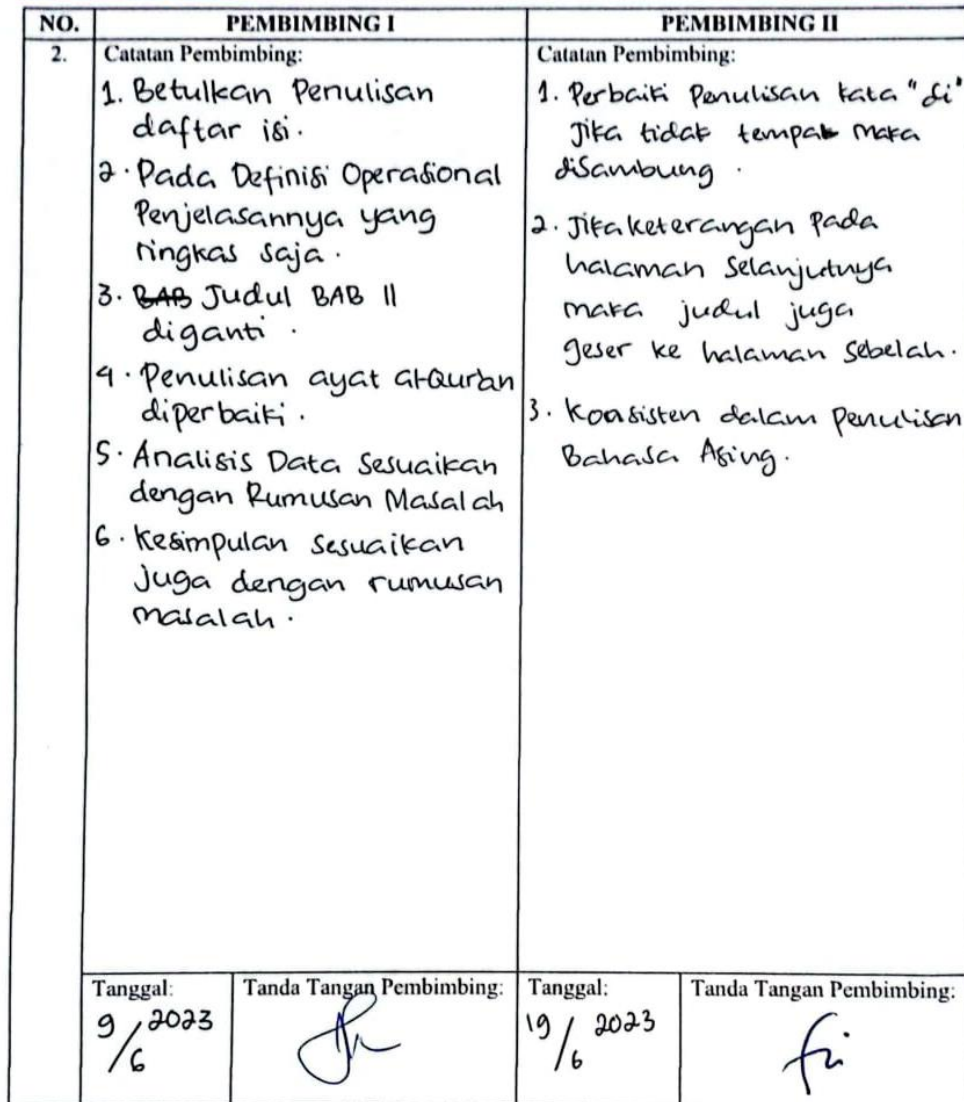 NO.
PEMBIMBING I
PEMBIMBING II
2.
Catatan Pembimbing:
1. Betulkan Penulisan
daftar isi.
2. Pada Definisi Operasional
Penjelasannya yang
ringkas saja.
3. BAB Judul BAB II
diganti.
4. Penulisan ayat al-Qur'an
diperbaiki.
5. Analisis Data Sesuaikan
dengan Rumusan Masalah
6. Kesimpulan sesuaikan
juga dengan rumusan
masalah.
Catatan Pembimbing:
1. Perbaiki Penulisan kata "di"
Jika tidak tempat maka
disambung.
2. Jika keterangan pada
halaman selanjutnya
maka judul juga
geser ke halaman sebelah.
3. Konsisten dalam penulisan
Bahasa Asing.
Tanggal:
9/6 2023
Tanda Tangan Pembimbing:
Tanggal:
19/6 2023
Tanda Tangan Pembimbing: